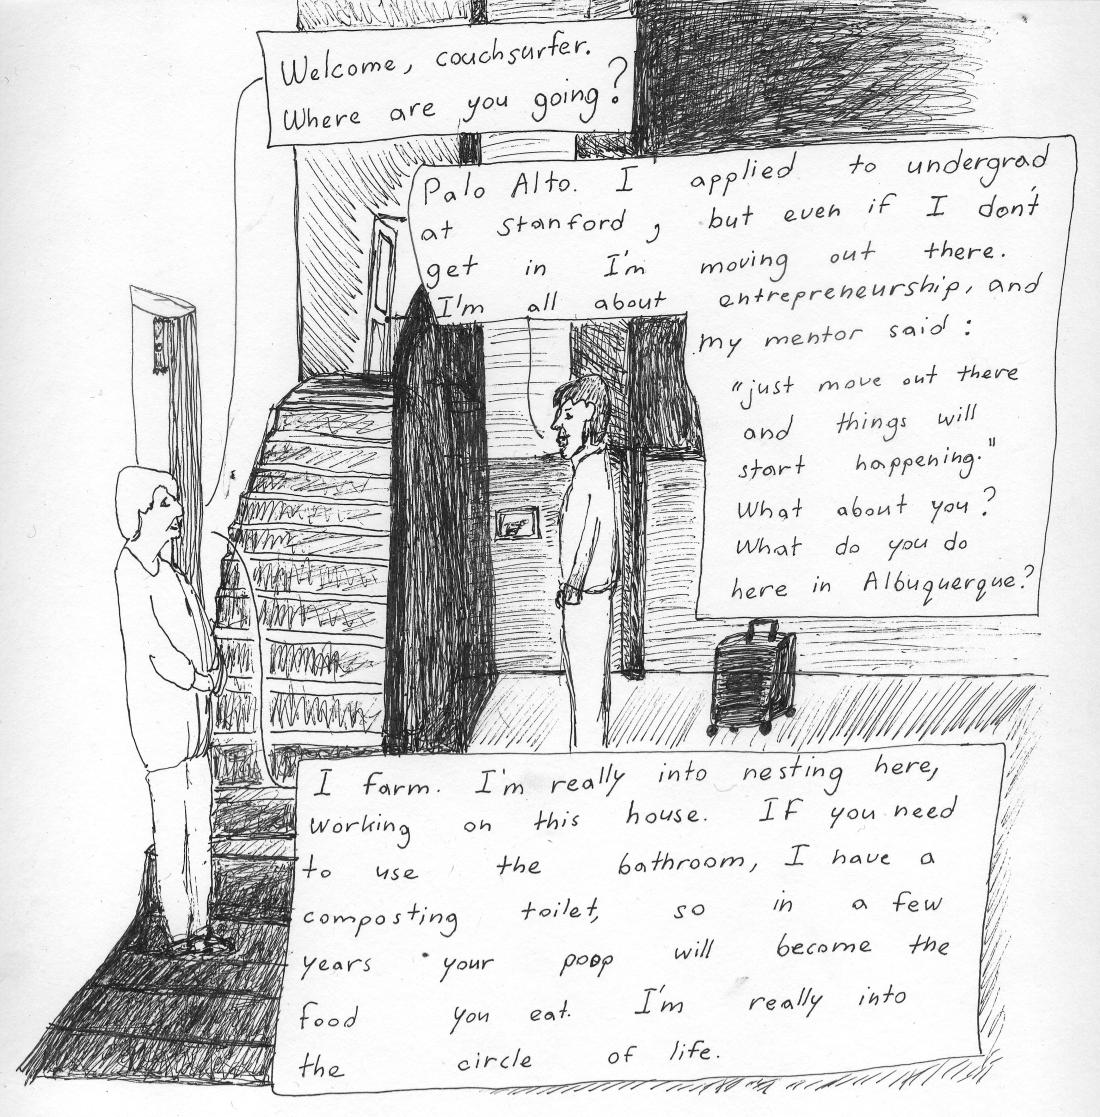 Welcome, couchsurfer.
Where are you going?
Palo Alto. I applied to undergrad
at Stanford, but even if I don't
get in I'm moving out there.
I'm all about entrepreneurship, and
my mentor said:
"just move out there
and things will
start happening."
What about you?
What do you do
here in Albuquerque?
I farm. I'm really into nesting here,
working on this house. If you need
to use the bathroom, I have a
composting toilet, so in a few
years your poop will become the
food you eat. I'm really into
the circle of life.